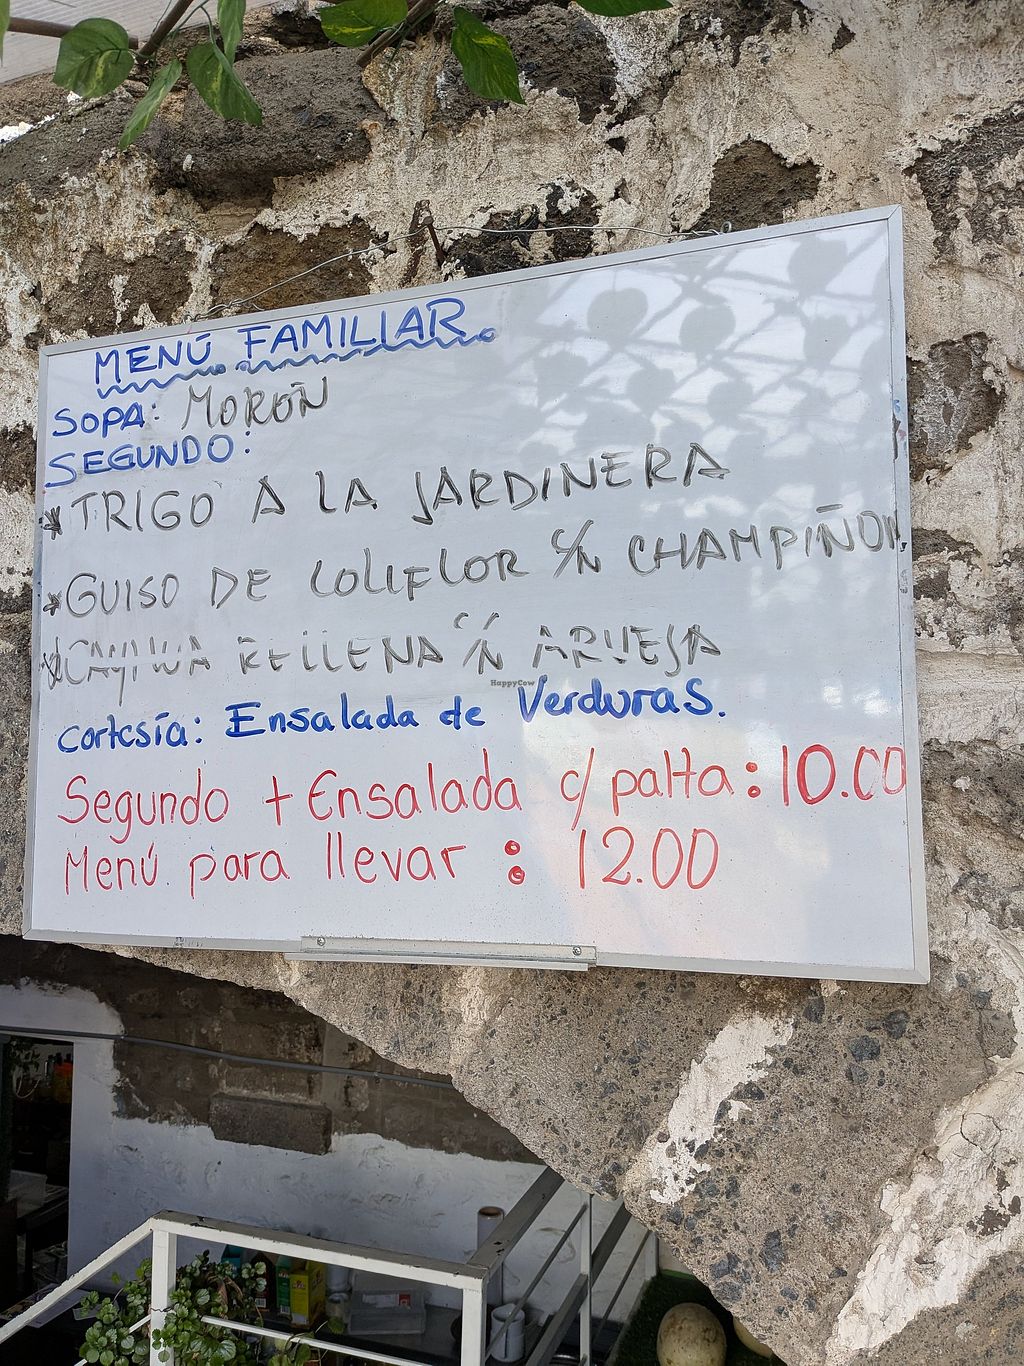 MENÚ FAMILIAR
SOPA: MOROÑ
SEGUNDO:
* TRIGO A LA JARDINERA
* GUISO DE COLIFLOR C/N CHAMPIÑON
* CAYHUA RELLENA C/N ARVEJA
HappyCow
cortesía: Ensalada de Verduras.
Segundo + Ensalada c/ palta: 10.00
Menú para llevar : 12.00